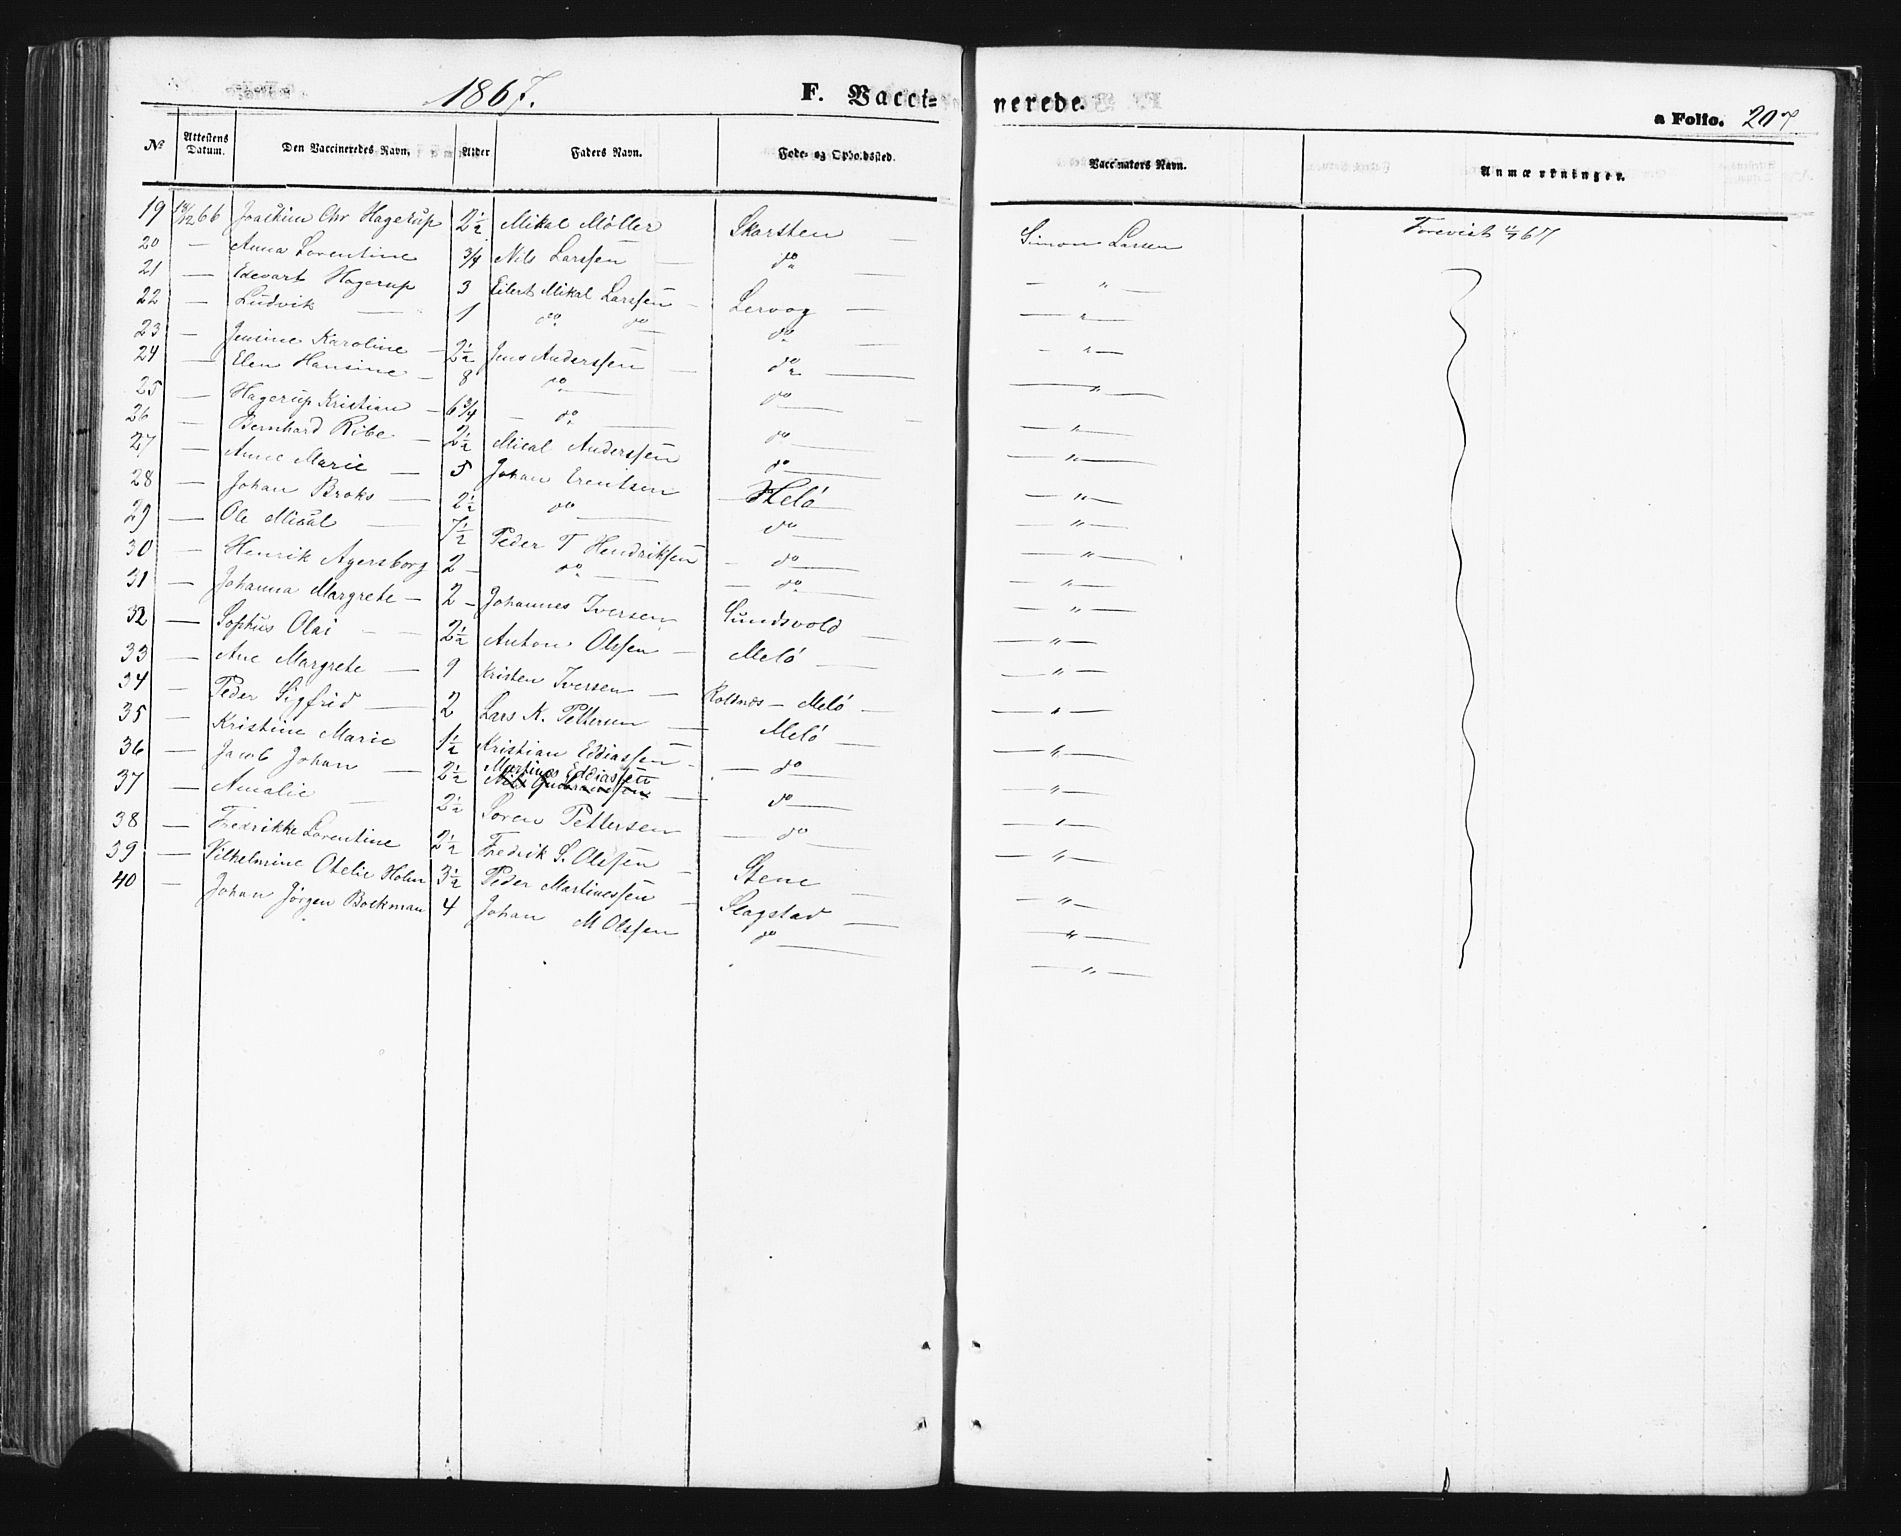 1867.
F. Vacci= nerede. a Folio. 207
No Attestens Datum. Den Vaccineredes Navn. Alder Faders Navn. Føde- og Opholdssted. Vaccinators Navn. Anmærkninger.
19 18/12 66 Joachim Chr Hagerup 2 1/2 Mikal Møller Skarsten — Simon Larsen Forevist 67
20 — Anna Lorentine 3/4 Nils Larssen — do — — " —
21 — Edevart Hagerup 3 Eilert Mikal Larssen — Lervog — — " —
22 — Ludvik — 1 do do — do — — " —
23 — Jensine Karoline — 2 1/2 Jens Anderssen — do — — " —
24 — Elen Hansine — 8 do — do — — " —
25 — Hagerup Kristian — 6 3/4 — do — do — — " —
26 — Bernhard Ribe — 2 1/2 Mical Anderssen do — — " —
27 — Anne Marie — 5 Johan Erentsen — Melö — " —
28 — Johan Broks — 2 1/2 do — do — — " —
29 — Ole Mical — 7 1/2 Peder T Hendriksen — do — — " —
30 — Henrik Agersborg 2 — do — — do — — " —
31 — Johanna Margrete — 2 — Johannes Iversen Sundsvold — — " —
32 — Sophus Olai — — 2 1/2 Anton Olssen — Melö — — " —
33 — Ane Margrete — 9 Kristen Iversen — Koldnæs — Melö — — " —
34 — Peder Sigfrid — 2 Lars K. Pettersen — Melö — — " —
35 — Kristine Marie 1 1/2 Kristian Eddiassen — — do — — " —
36 — Jacob Johan — 2 1/2 Martines Eddiassen — do — — " —
37 — Amalie — 2 1/2 Søren Pettersen — do — — " —
38 — Fredrikke Lorentine 2 1/2 Fredrik S. Olssen — Stene — — " —
39 — Vilhelmine Otelie Holm 3 1/2 Peder Martinessen — Slagstad — — " —
40 — Johan Jørgen Boekman 4 Johan M Olssen do — — " —